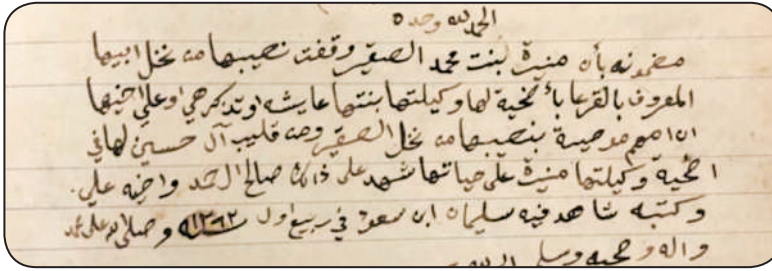 الحمد لله وحده
مضمونه بأن منيرة بنت محمد الصقير وقفت نصيبها من نخل ابيها
المعروف بالقرعا بأضحية لها وكيلتها بنتها عايشه او تذكر هي وعلى اختها
ان امهم موصية بنصيبها من نخل الصقير ومن قليب آل حسين لها في
اضحية وكيلتها منيرة على حياتها شهد على ذالك صالح الحمد واخيه علي
وكتبه شاهد فيه سليمان ابن سعود في ربيع اول سنه ١٢٩٢ وصلى الله على محمد
واله وصحبه وسلم